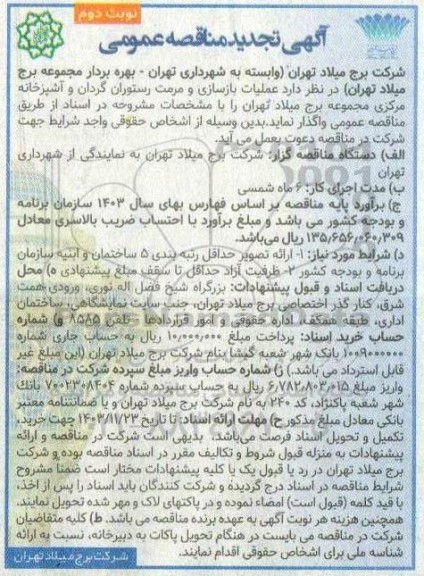 نوبت دوم
آگهی تجدید مناقصه عمومی
شرکت برج میلاد تهران (وابسته به شهرداری تهران - بهره بردار مجموعه برج
میلاد تهران) در نظر دارد عملیات بازسازی و مرمت رستوران گردان و آشپزخانه
مرکزی مجموعه برج میلاد تهران را با مشخصات مشروحه در اسناد از طریق
مناقصه عمومی واگذار نماید.بدین وسیله از اشخاص حقوقی واجد شرایط جهت
شرکت در مناقصه دعوت بعمل می آید.
الف) دستگاه مناقصه گزار: شرکت برج میلاد تهران به نمایندگی از شهرداری
تهران
ب) مدت اجرای کار: ۶ ماه شمسی
ج) برآورد پایه مناقصه بر اساس فهارس بهای سال ۱۴۰۳ سازمان برنامه
و بودجه کشور می باشد و مبلغ برآورد با احتساب ضریب بالاسری معادل
ریال می‌باشد.
د) شرایط مورد نیاز: ۱- ارائه تصویر حداقل رتبه بندی ۵ ساختمان و ابنیه سازمان
برنامه و بودجه کشور ۲- ظرفیت آزاد حداقل تا سقف مبلغ پیشنهادی ه) محل
دریافت اسناد و قبول پیشنهادات: بزرگراه شیخ فضل اله نوری، ورودی همت
شرق، کنار گذر اختصاصی برج میلاد تهران، جنب سایت نمایشگاهی، ساختمان
اداری، طبقه همکف، اداره حقوقی و امور قراردادها - تلفن ۸۵۸۵ و) شماره
حساب خرید اسناد: پرداخت مبلغ ۱۰,۰۰۰,۰۰۰ ریال به حساب جاری شماره
۱۰۰۹۰۰۰۰۰۰ بانک شهر شعبه گیشا بنام شرکت برج میلاد تهران (این مبلغ غیر
قابل استرداد می باشد.) ز) شماره حساب واریز مبلغ سپرده شرکت در مناقصه:
واریز مبلغ ۶,۷۸۲,۸۰۳,۰۱۵ ریال به حساب سپرده شماره ۷۰۰۲۳۰۸۲۰۴ بانک
شهر شعبه پاکنژاد، کد ۲۴۰ به نام شرکت برج میلاد تهران و یا ضمانتنامه معتبر
بانکی معادل مبلغ مذکور ح) مهلت ارائه اسناد: تا تاریخ ۱۴۰۳/۱۱/۲۳ جهت خرید،
تکمیل و تحویل اسناد فرصت می‌باشد، بدیهی است شرکت در مناقصه و ارائه
پیشنهادات به منزله قبول شروط و تکالیف مقرر در اسناد مناقصه بوده و شرکت
برج میلاد تهران در رد یا قبول یک یا کلیه پیشنهادات مختار است ضمنا مشروح
شرایط مناقصه در اسناد درج گردیده و شرکت کنندگان باید اسناد را پس از اخذ،
با قید کلمه (قبول است) امضاء نموده و در پاکتهای لاک و مهر شده تحویل نمایند.
همچنین هزینه هر نوبت آگهی به عهده برنده مناقصه می باشد. ط) کلیه متقاضیان
شرکت در مناقصه می بایست در هنگام تحویل پاکات به دبیرخانه، نسبت به ارائه
شناسه ملی برای اشخاص حقوقی اقدام نمایند.
شرکت برج میلاد تهران